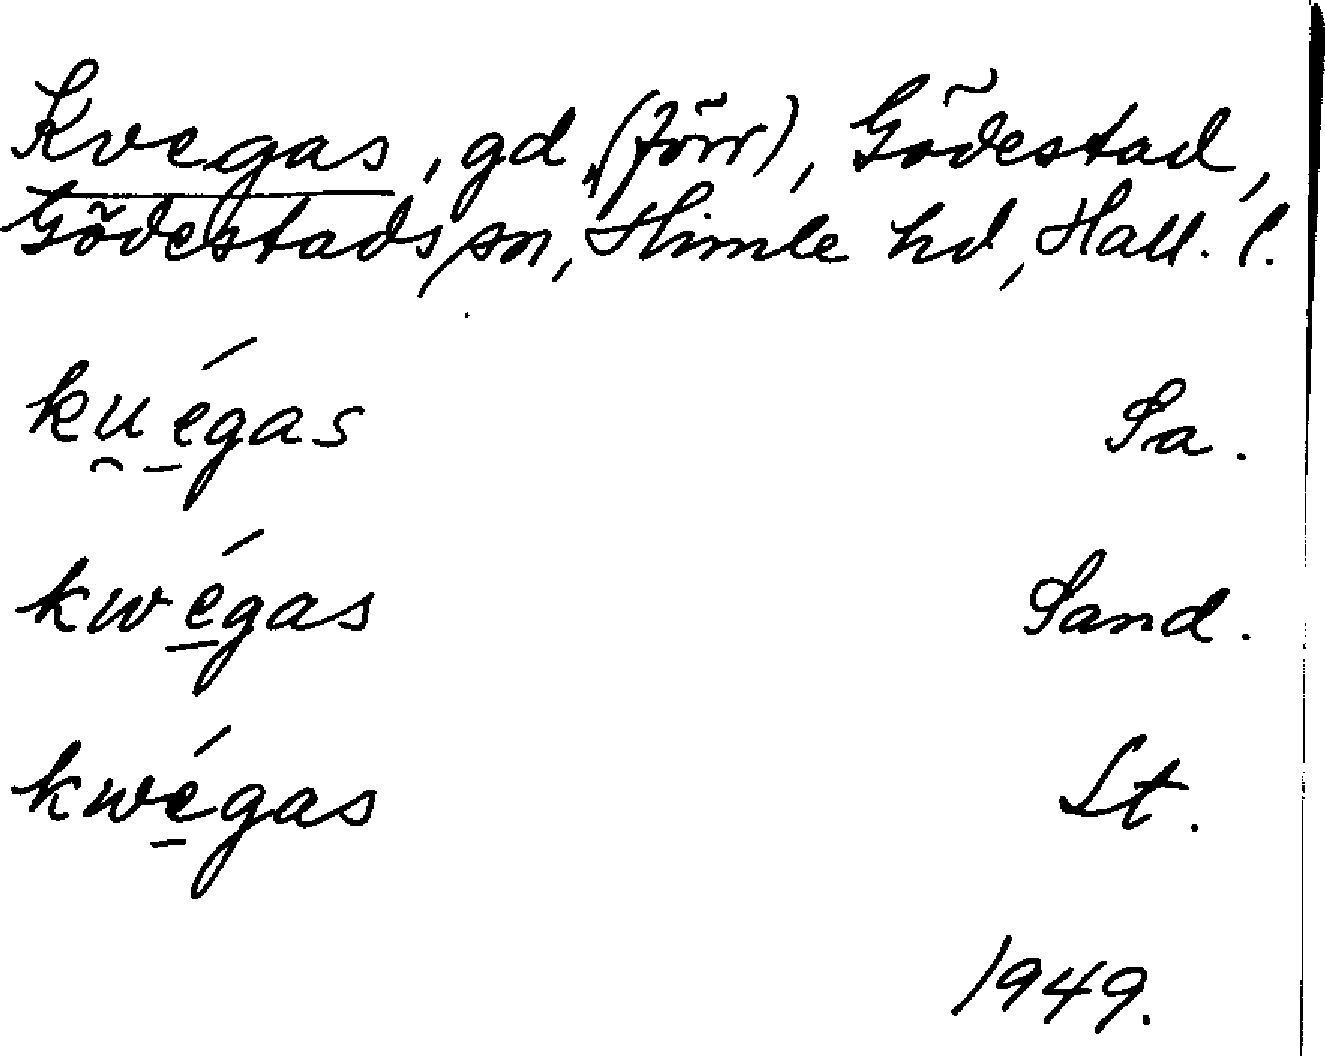 Kvegas, gd (förr), Gödestad,
Gödestads sn, Himle hd, Hall. l.
ku̯é̱gas Sa.
kwé̱gas Sand.
kwé̱gas St.
1949.